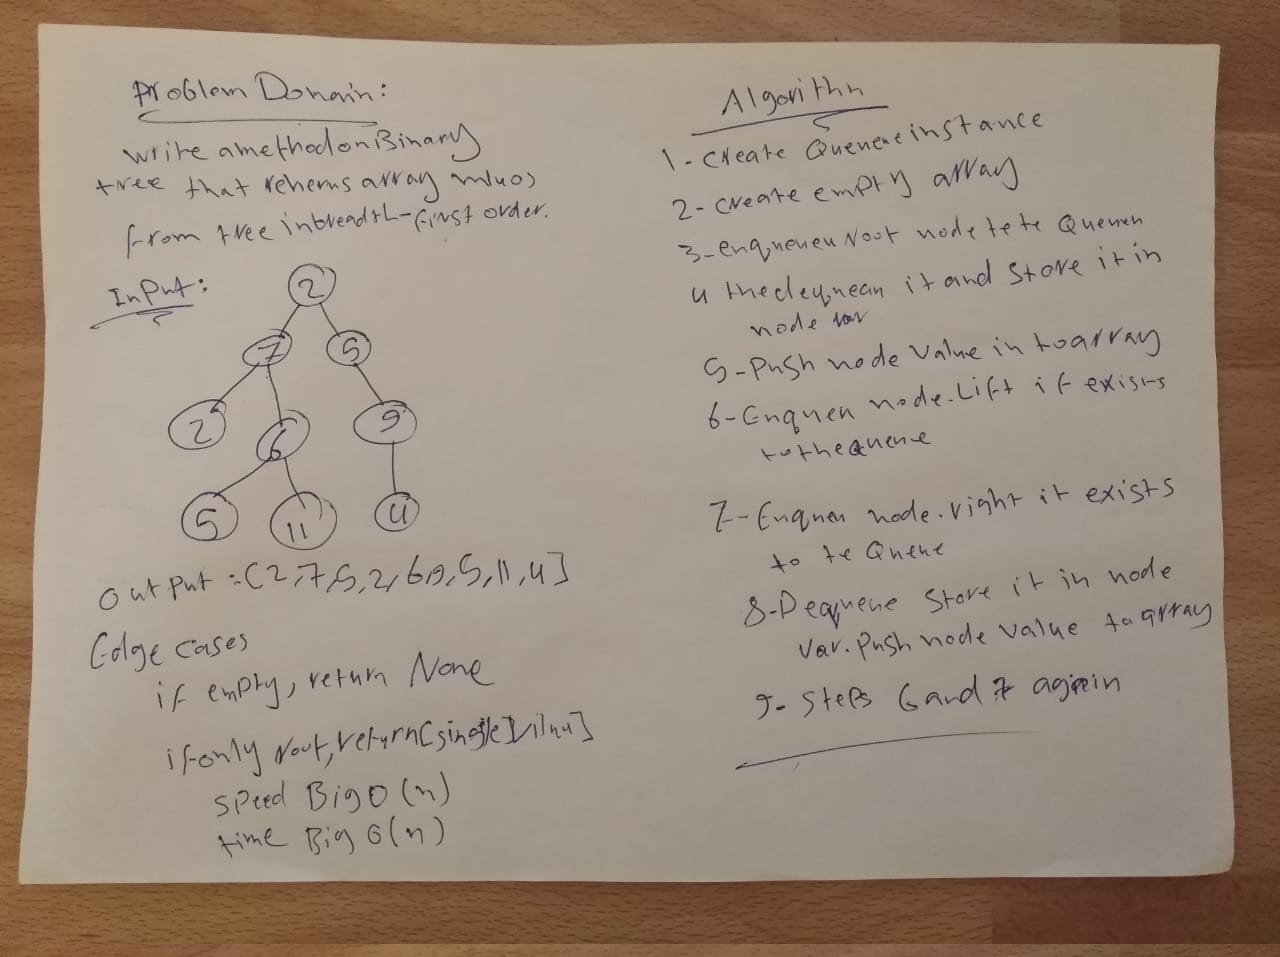 Problem Domain:
write a method on Binary
tree that reherns array vnluos
from tree in breadth-first order.
InPut:
2
7 5
2 6 9
5 11 4
outPut :[2,7,5,2,6,9,5,11,4]
Edge cases
if empty, return None
if only root, return [single] vilnu]
speed Big O (n)
time Big O (n)
Algorithn
1- Create Queneue instance
2- create empty array
3- enqueueu root node to te Queuen
4 the dequean it and store it in
node var
5- Push node value in to array
6- Enquen node.Lift if exisrs
to the quene
7- Enquen node.right it exists
to te Quene
8- Dequeue Store it in node
var. Push node value to array
9- Steps 6 and 7 again